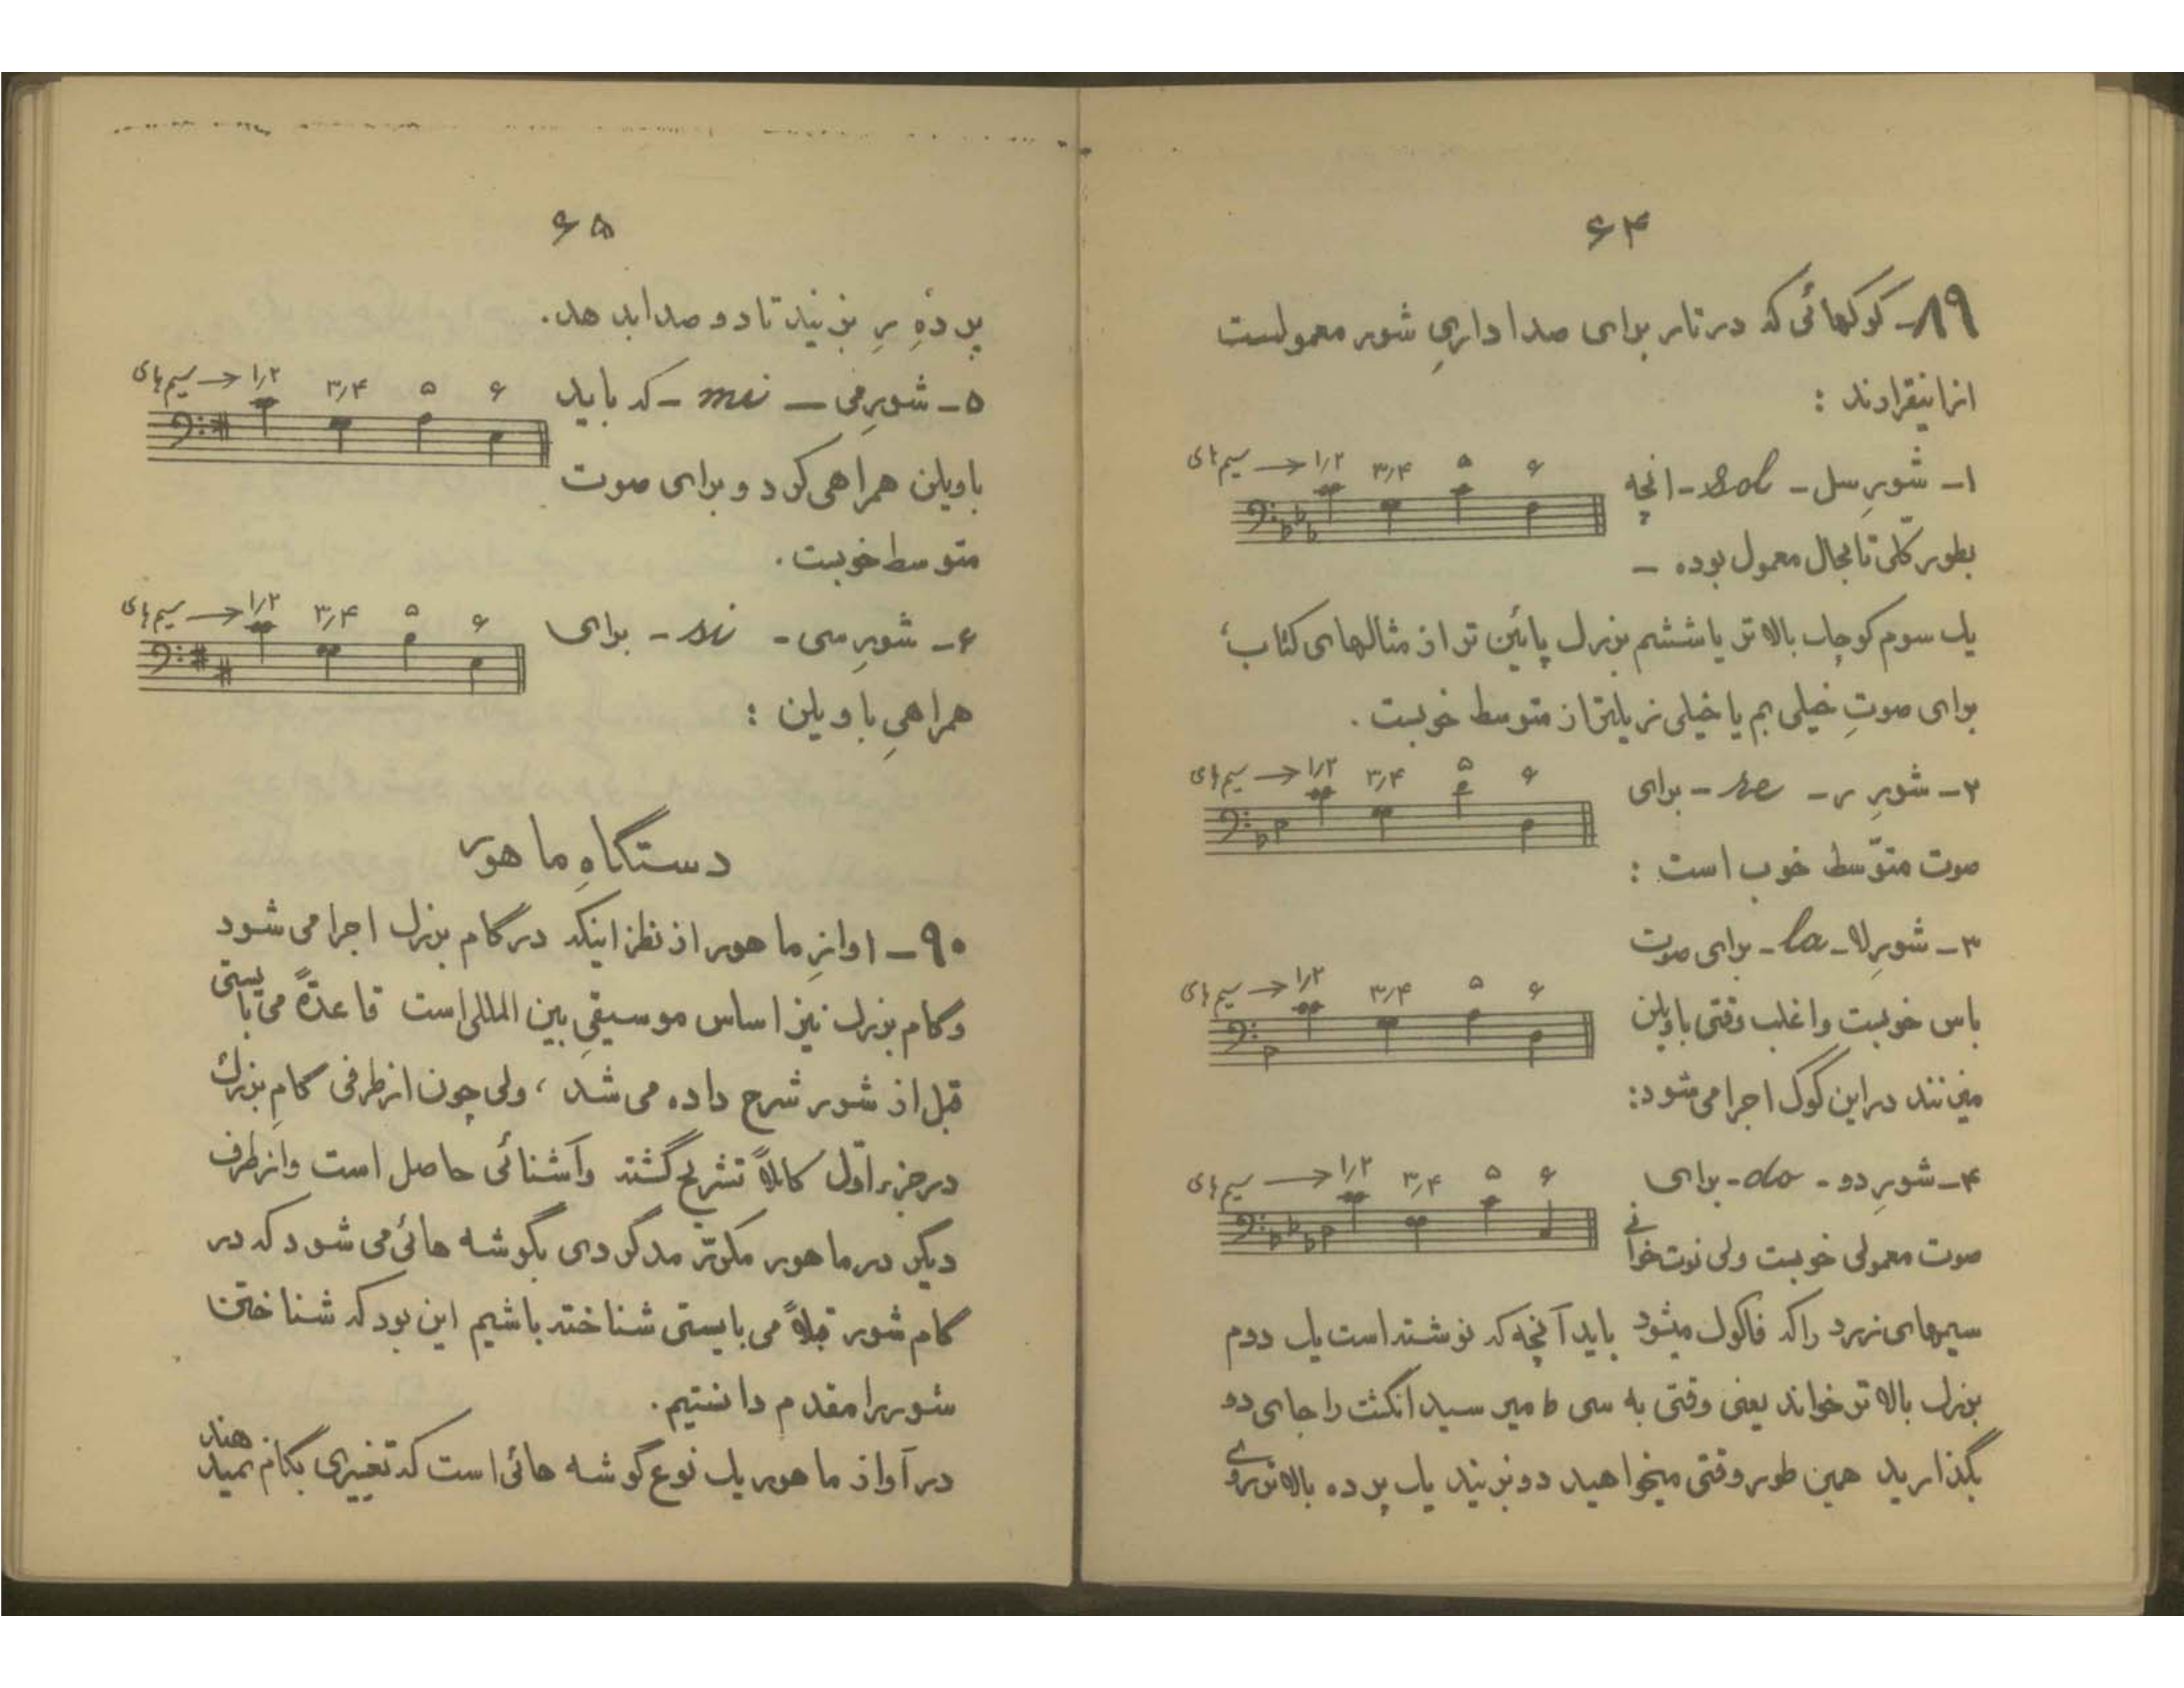 ۶۴
۸۹- کوکهائی که در تار برای صدا داریِ شور معمولست
ازاینقرارند :
۱- شورِ سل - sol - انچه
سیم های → ۱٫۲ ۳٫۴ ۵ ۶
بطور کلّی تابحال معمول بوده -
یک سوم کوچک بالا تر یا ششم بزرگ پائین تر از مثالهای کتاب،
برای صوتِ خیلی بم یا خیلی زیرتر از متوسط خوبست .
۲- شورِ ر - re - برای
سیم های → ۱٫۲ ۳٫۴ ۵ ۶
صوت متوّسط خوب است :
۳- شورِ لا - la - برای صوت
سیم های → ۱٫۲ ۳٫۴ ۵ ۶
باس خوبست و اغلب وقتی با ویلن
میزنند در این کوک اجرا می شود:
۴- شورِ دو - do - برای
سیم های → ۱٫۲ ۳٫۴ ۵ ۶
صوت معمولی خوبست ولی نوت خوانی
سیمهای زرد را که فا کوک میشود باید آنچه که نوشته است یک دوم
بزرگ بالا تر خواند یعنی وقتی به سی b میرسید انگشت را جای دو
بگذارید همین طور وقتی میخواهید دو بزنید یک پرده بالا تر روی
۶۵
پردهٔ رِ بزنید تا دو صدا بدهد.
۵- شورِ می - mi - که باید
سیم های → ۱٫۲ ۳٫۴ ۵ ۶
با ویلن همراهی کرد و برای صوت
متوسط خوبست .
۶- شورِ سی - si - برای
سیم های → ۱٫۲ ۳٫۴ ۵ ۶
همراهیِ با ویلن :
دستگاهِ ماهور
۹۰- اوازِ ماهور از نظر اینکه در گام بزرگ اجرا می شود
و گام بزرگ نیز اساس موسیقیِ بین المللی است قاعدةً می بایستی
قبل از شور شرح داده می شد ، ولی چون از طرفی گامِ بزرگ
در جزء اوّل کاملاً تشریح گشته و آشنائی حاصل است و از طرف
دیگر در ماهور مکرّر مدگردی بگوشه هائی می شود که در
گام شور قبلاً می بایستی شناخته باشیم این بود که شناختن
شور را مقدم دانستیم .
در آواز ماهور یک نوع گوشه هائی است که تغییری بگام نمیدهند